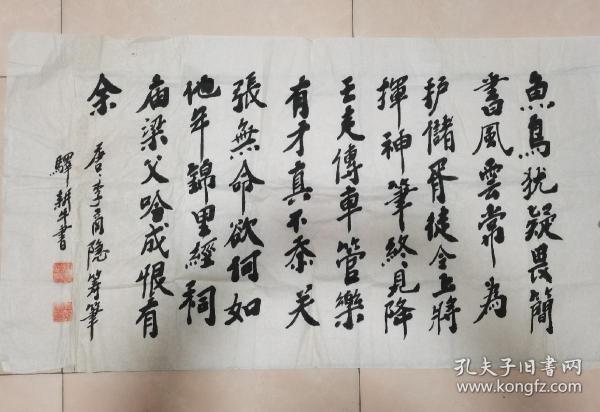 魚鳥犹疑畏簡
書風雲常為
护儲胥徒令上將
揮神筆終見降
王走傳車管樂
有才真不忝关
張無命欲何如
他年錦里經祠
庙梁父吟成恨有
余
唐李商隐筹筆
驿耕牛書
孔夫子旧书网
www.kongfz.com